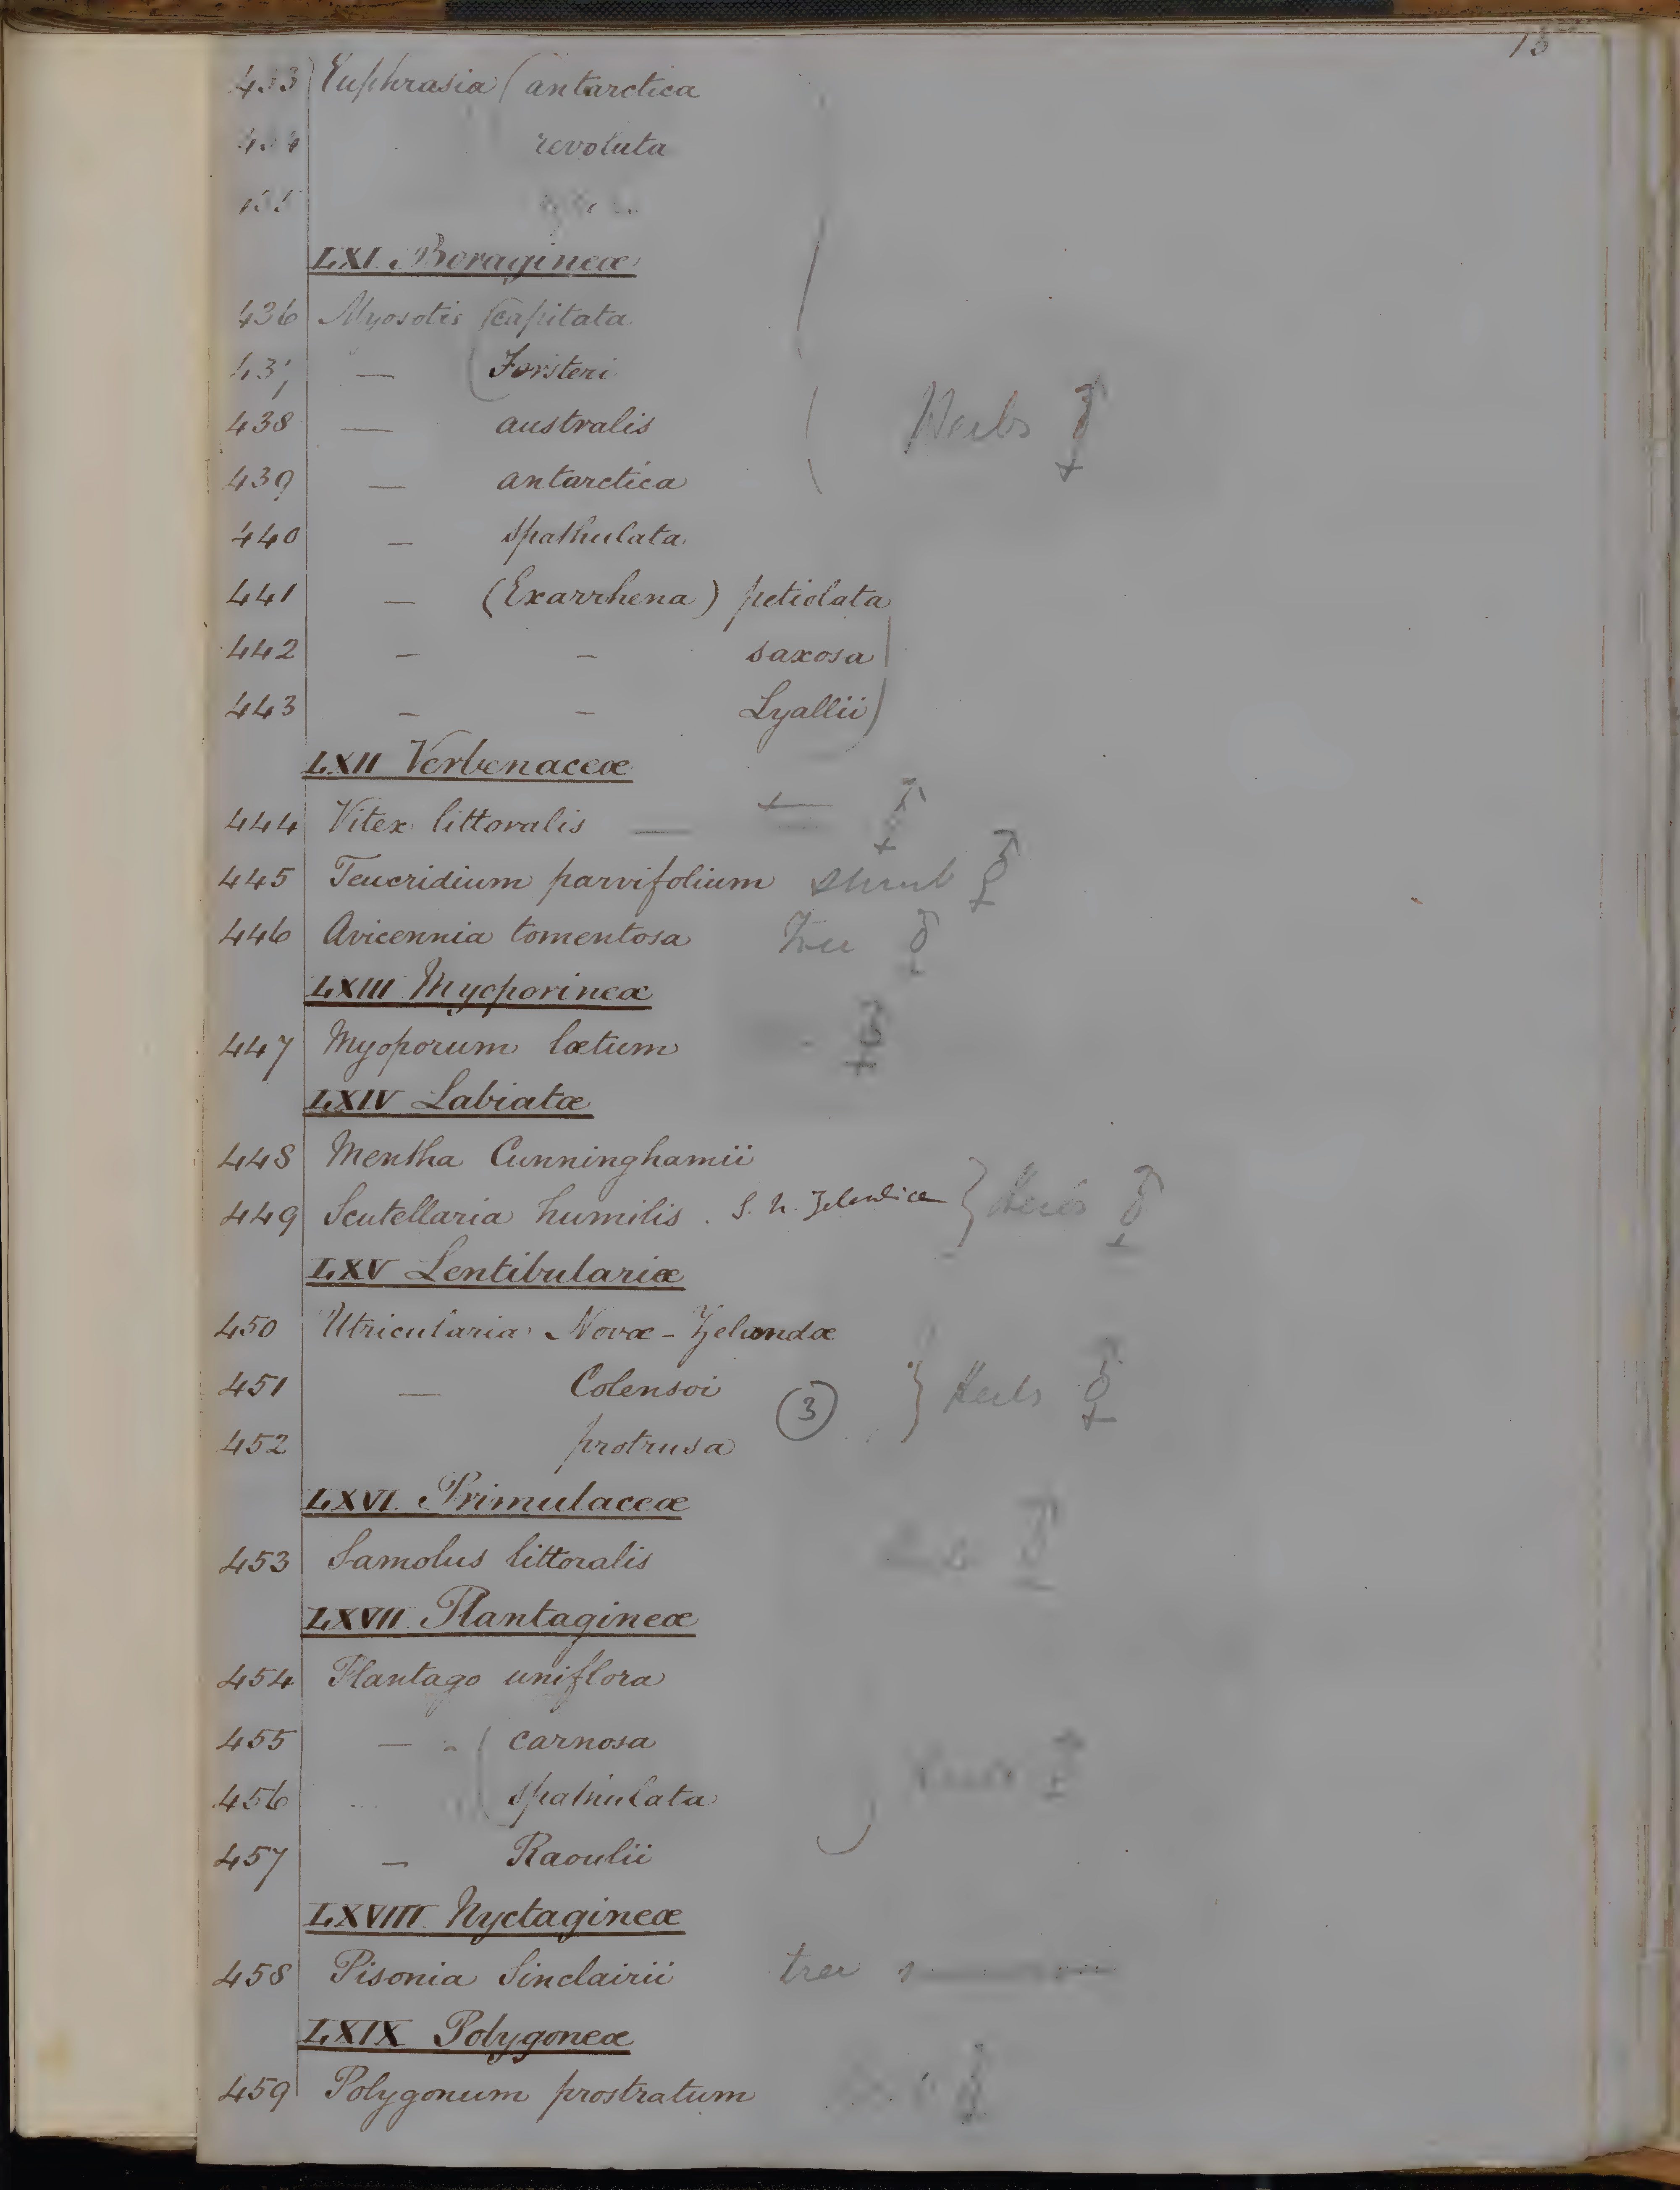 15
433 Euphrasia (antarctica
434 revoluta
435
LXI. Boragineæ
436 Myosotis (capitata
437 — (Forsteri
438 — australis
439 — antarctica
Herbs ⚥
440 — spathulata
441 — (Exarrhena) petiolata
442 — — saxosa
443 — — Lyallii)
LXII Verbenaceæ
444 Vitex littoralis —
445 Teucridium parvifolium shrub ⚥
446 Avicennia tomentosa Tree ⚥
LXIII Myoporineæ
447 Myoporum lætum ⚥
LXIV Labiatæ
448 Mentha Cunninghamii
449 Scutellaria humilis. S. N. Zelandica } Herbs ⚥
LXV Lentibulariæ
450 Utricularia Novæ-Zelandæ
451 — Colensoi (3) } Herbs ⚥
452 protrusa
LXVI. Primulaceæ
453 Samolus littoralis
LXVII Plantagineæ
454 Plantago uniflora
455 — ( carnosa
456 spathulata
457 — Raoulii
LXVIII. Nyctagineæ
458 Pisonia Sinclairii tree
LXIX Polygoneæ
459 Polygonum prostratum